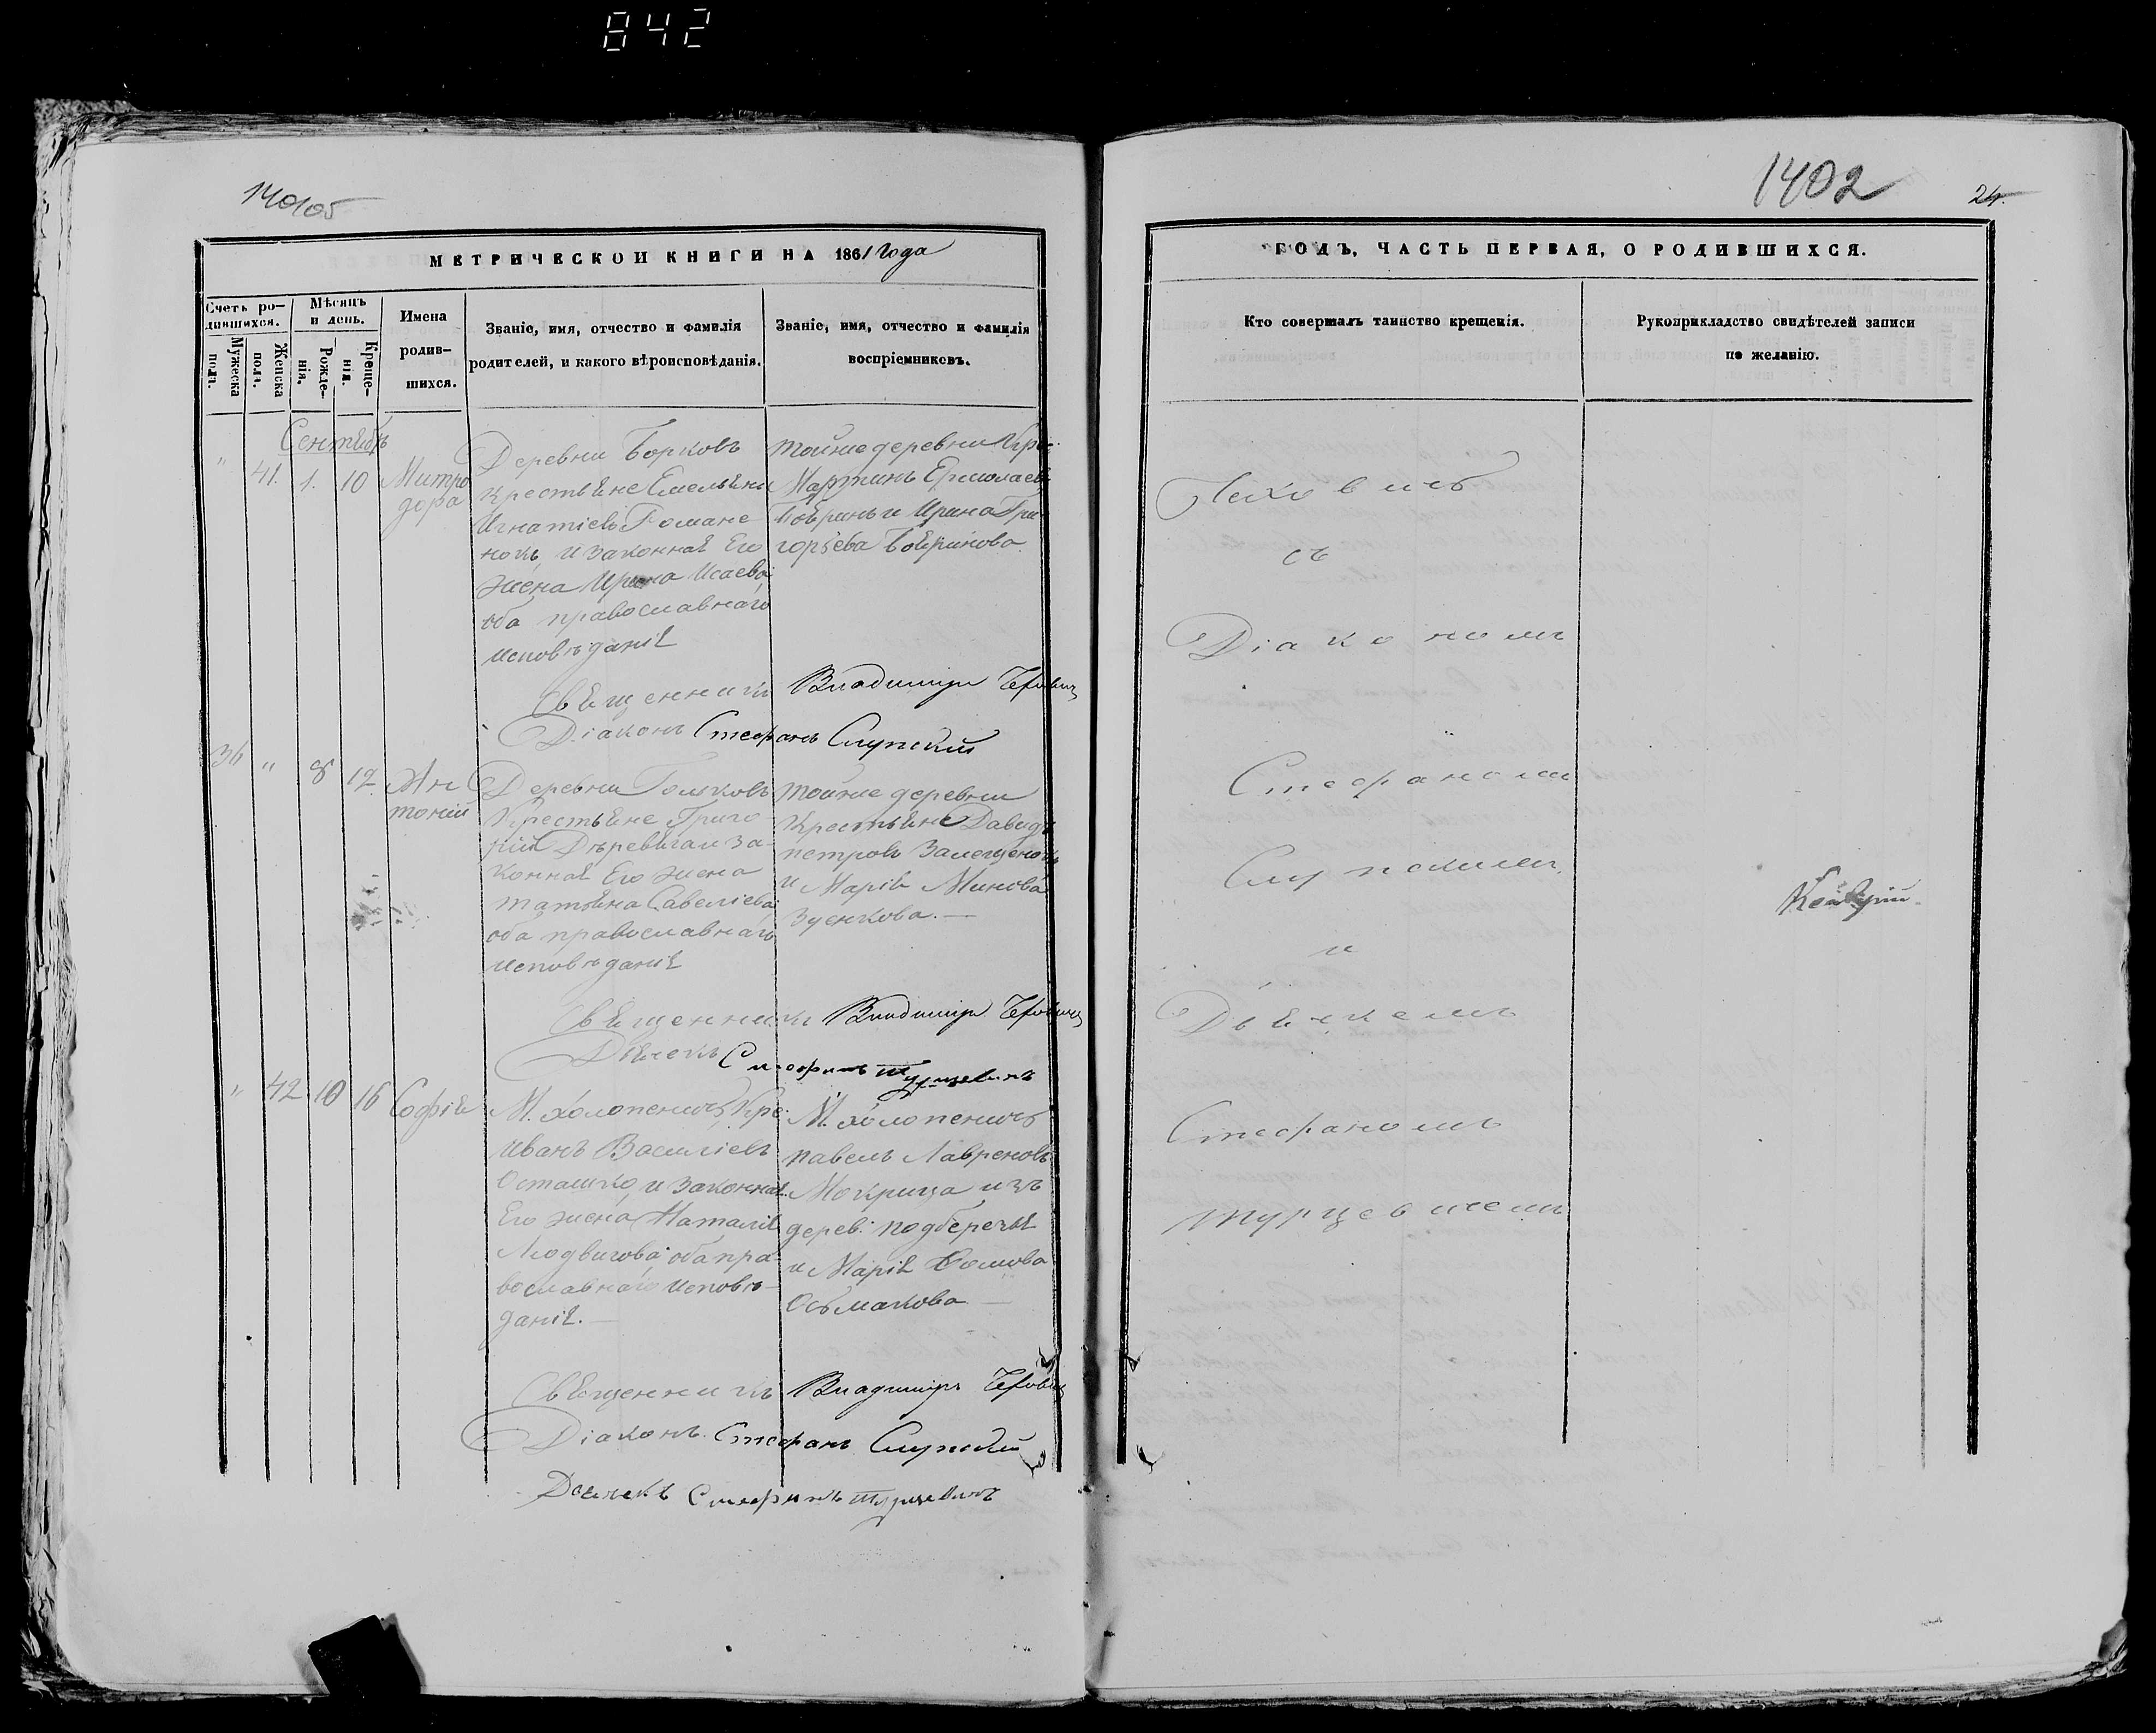 842
1402
24.
МЕТРИЧЕСКОЙ КНИГИ НА 1861 года
Счетъ ро-
дившихся.
Мужеска
пола.
Женска
пола.
Мѣсяцъ
и день.
Рожде-
нія.
Креще-
нія.
Имена
родив-
шихся.
Званіе, имя, отчество и фамилія
родителей, и какого вѣроисповѣданія.
Званіе, имя, отчество и фамилія
воспріемниковъ.
Сентябрь
" 41. 1. 10
Митро
дора
Деревни Борковъ
крестьяне Емельянъ
Игнатіевъ Романе
нокъ, и законная Его
жена Ирина Исаева
оба православнаго
исповѣданія
тойже деревни Кре:
Мартинъ Ермолаевъ
и Ирина Гри
горьева
Священникъ Владиміръ
Діаконъ Стефанъ Слупскій
36 " 8 12
Ан
тоній
Деревни
Крестьяне Григо
рій за-
конная Его жена
татьяна Савеліева
оба православнаго
исповѣданія
тойже деревни
Крестьяне Давидъ
петровъ
и Марія Минова
Зуенкова.—
Священникъ Владиміръ
Дьячекъ Стефанъ Турцевичъ
" 42 10 16
Софія
М. холопеничъ, Кре:
Иванъ Василіевъ
Осташко, и законная
Его жена Наталія
Людвигова, оба пра-
вославнаго исповѣ-
данія.—
М. холопеничъ
павелъ Лавреновъ
Мокрица изъ
дерев: подберечья
и Марія Фомова
Осьмакова —
Священникъ Владиміръ
Діаконъ Стефанъ Слупскій
Дьячекъ Стефанъ Турцевичъ
ГОДЪ, ЧАСТЬ ПЕРВАЯ, О РОДИВШИХСЯ.
Кто совершалъ таинство крещенія.
Рукоприкладство свидѣтелей записи
по желанію.
съ
Діакономъ
Стефаномъ
Слупскимъ
и
Дьячкемъ
Стефаномъ
Турцевичемъ